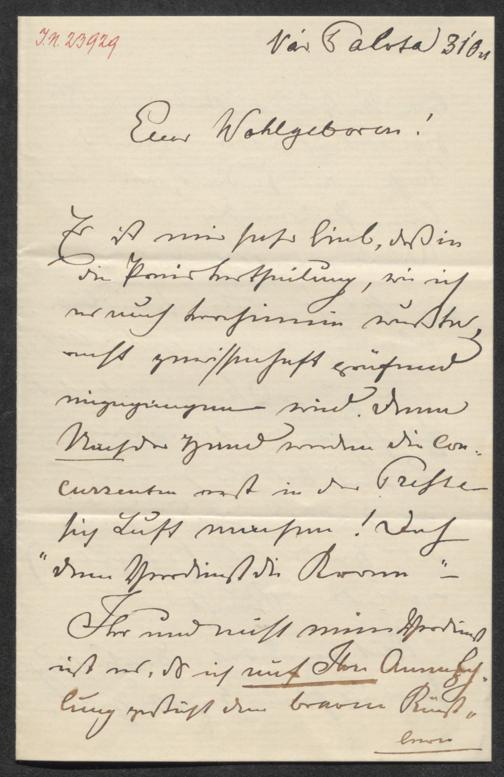 I.N. 23929
Vár Palota 31/0
Euer Wohlgeboren!
Es ist mir sehr lieb, daß in
die Preisvertheilung, wie ich
es auch
recht gewissenhaft prüfend
eingegangen wird. Denn
Nach der werden die Con-
currenten erst in der Presse
sich Luft machen! Doch
"dem Verdienst die Krone"–
Ihr und nicht mein Verdienst
ist es, daß ich auf Ihre Anempfeh-
lung gestützt dem braven Künst-
lern